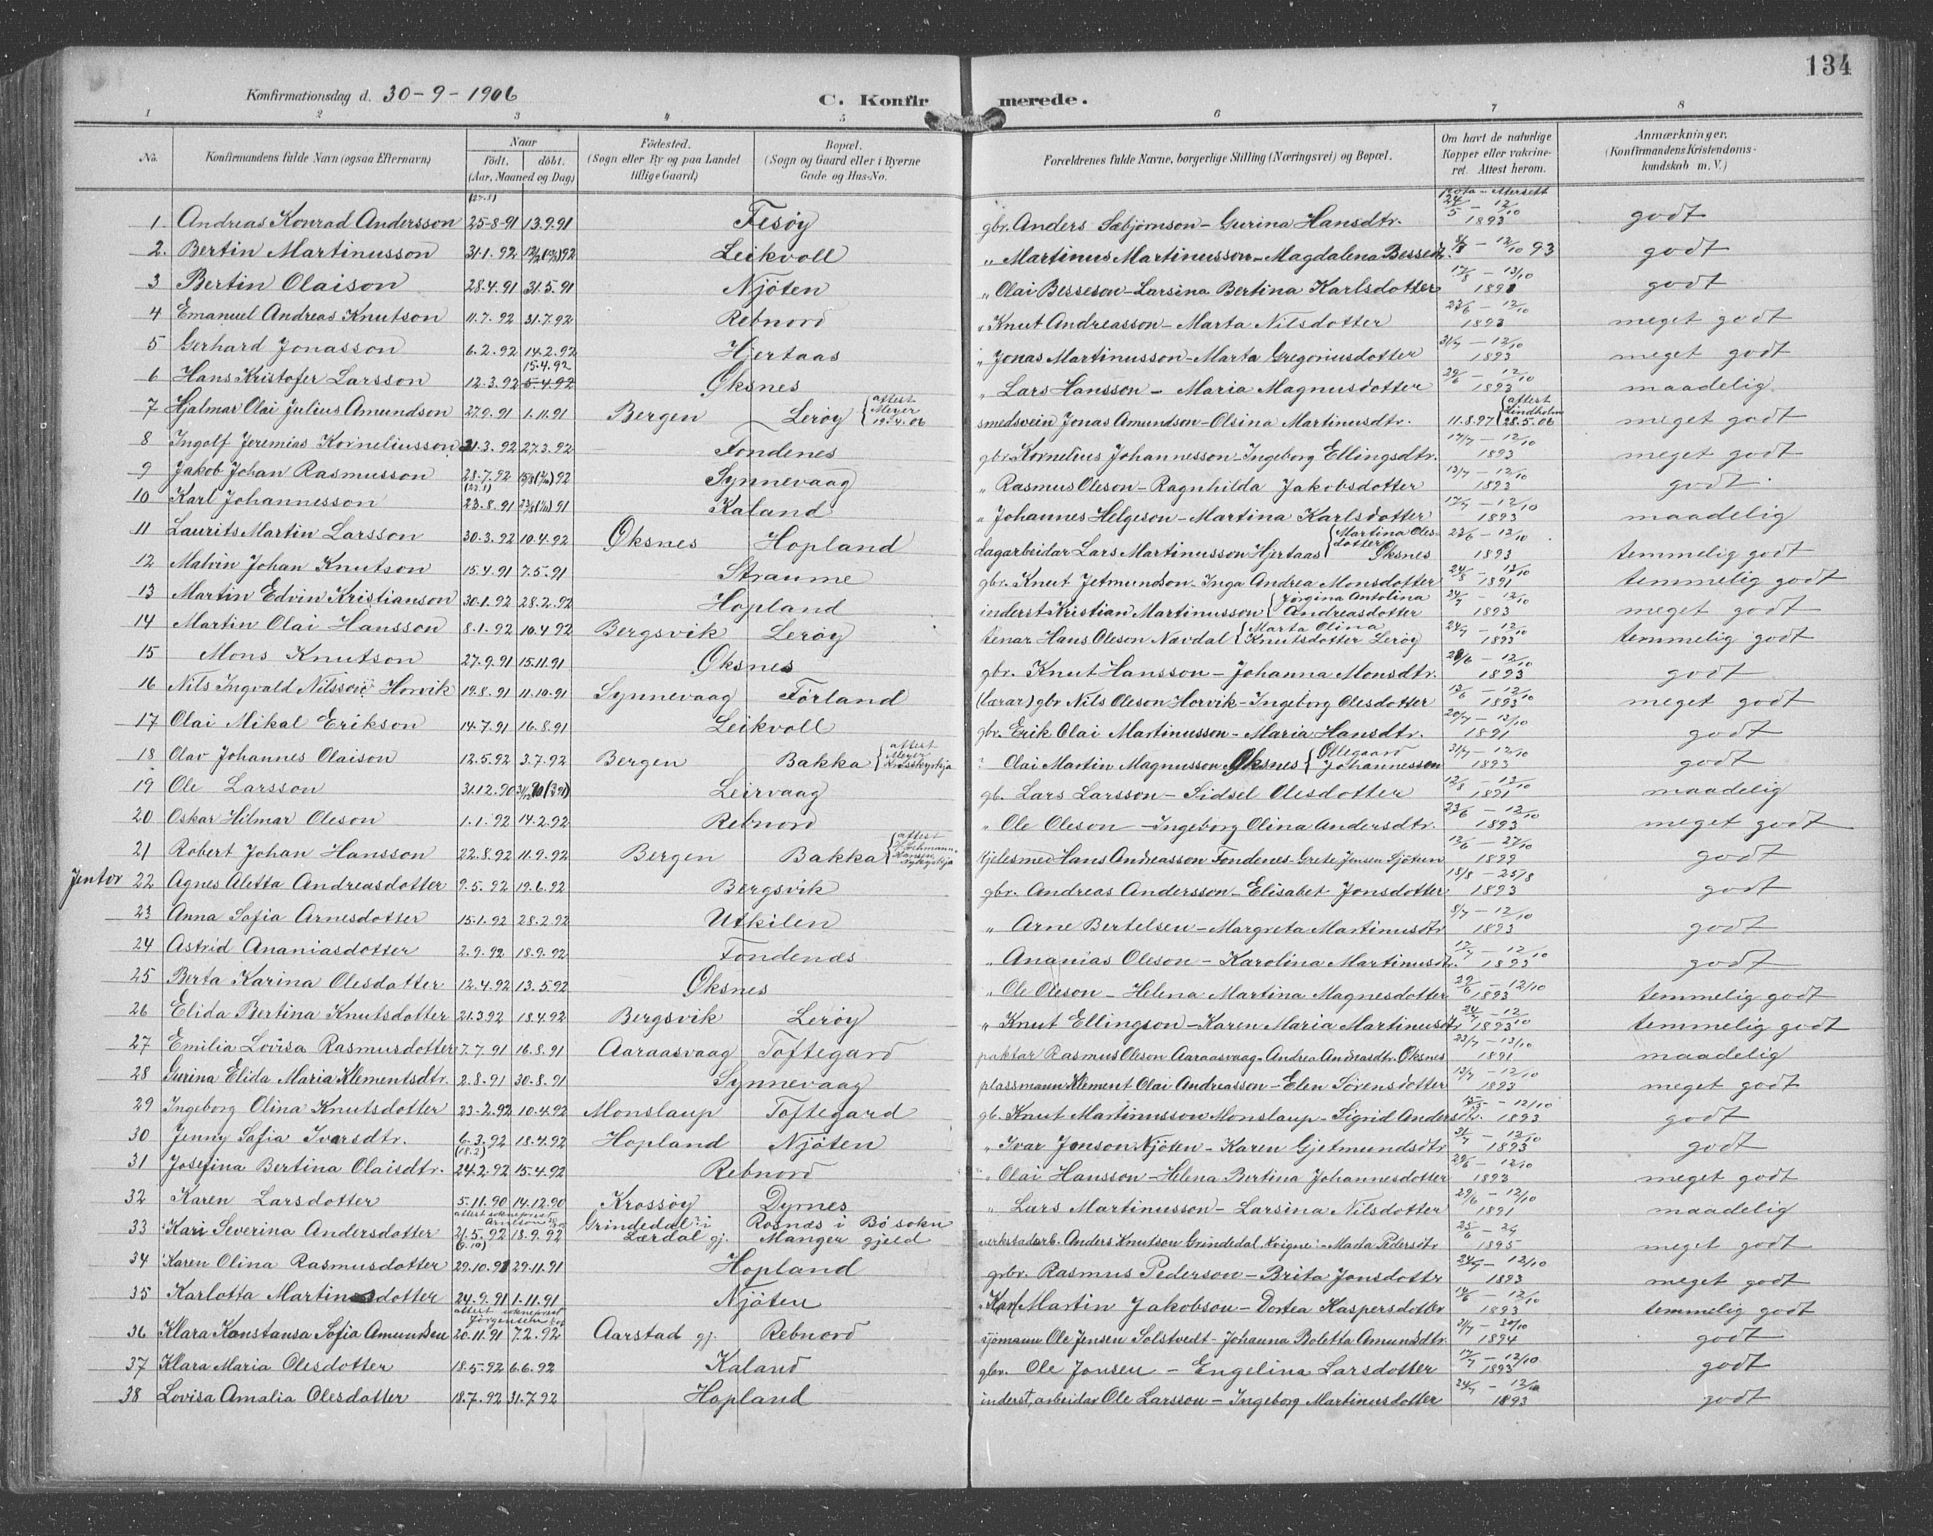 134
Konfirmationsdag d. 30-9-1906 C. Konfirmerede.
1 2 3 4 5 6 7 8
No. Konfirmandens fulde Navn (ogsaa Efternavn) Naar født. døbt. (Aar, Maaned og Dag) Fødested. (Sogn eller By og paa Landet tillige Gaard) Bopæl. (Sogn og Gaard eller i Byerne Gade og Hus-No. Forældrenes fulde Navne, borgerlige Stilling (Næringsvei) og Bopæl. Om havt de naturlige Kopper eller vakcineret. Attest herom. Anmærkninger. (Konfirmandens Kristendomskundskab m. V.)
1. Andreas Konrad Andersson 25-8-91 13.9.91 Fesøy gbr. Anders Sæbjørnson - Gurina Hansdtr. 24/5 - 12/10 1893 godt
2. Bertin Martinusson 31.1.92 Leikvoll " Martinus Martinusson - Magdalena 8/8 - 12/10 93 godt
3 Bertin Olaison 28.4.91 31.5.91 Njøten " Olai Besseson - Larsina Bertina Karlsdotter 17/8 - 13/10 godt
4 Emanuel Andreas Knutson 11.7.92 31.7.92 Rebnord " Knut Andreasson - Marta Nilsdotter 23/6 - 12/10 1893 meget godt
5 Gerhard Jonasson 6.2.92 14.2.92 Hjertaas " Jonas Martinusson - Marta Gregoriusdotter 31/7 - 12/10 1893 meget godt
6 Hans Kristofer Larsson 12.3.92 15.4.92 5.4.92 Øksnes " Lars Hansson - Maria Magnusdotter 29/6 - 12/10 1893 maadelig
7 Hjalmar Olai Julius Amundson 27.9.91 1.11.91 Bergen Lerøy { attest Meyer 19.4.06 smedsvein Jonas Amundson - Olsina Martinusdtr. 11.8.97 { attest Lindholm 28.5.06 meget godt
8 Ingolf Jeremias Korneliusson 21.3.92 27.3.92 Fondenes gbr. Kornelius Johannesson - Ingeborg Ellingsdtr. 17/7 - 12/10 1893 meget godt
9 Jakob Johan Rasmusson 28.7.92 Synnevaag " Rasmus Oleson - Ragnhilda Jakobsdotter 13/7 - 12/10 1893 godt
10 Karl Johannesson 23.8.91 Kaland " Johannes Helgeson - Martina Karlsdotter 17/7 - 12/10 1893 maadelig
11 Laurits Martin Larsson 30.3.92 10.4.92 Øksnes Hopland dagarbeidar Lars Martinusson Hjertaas { Martina Olesdotter Øksnes 23/6 - 12/10 1893 temmelig godt
12 Malvin Johan Knutson 15.4.91 7.5.91 Straume gbr. Knut Jetmundson - Inga Andrea Monsdotter 24/8 - 13/10 1891 temmelig godt
13 Martin Edvin Kristianson 30.1.92 28.2.92 Hopland inderst Kristian Martinusson { Jørgina Antolina Andreasdotter 24/7 - 12/10 1893 meget godt
14 Martin Olai Hansson 8.1.92 10.4.92 Bergsvik Lerøy tenar Hans Oleson Nævdal { Marta Olina Knutsdotter Lerøy 24/7 - 12/10 1893 temmelig godt
15 Mons Knutson 27.9.91 15.11.91 Øksnes gbr. Knut Hansson - Johanna Monsdtr. 12/10 1893 godt
16 Nils Ingvald Nilsson Horvik 19.8.91 11.10.91 Synnevaag Førland (lærar) gbr Nils Oleson Horvik - Ingeborg Olesdotter 13/6 - 12/10 1893 meget godt
17 Olai Mikal Erikson 14.7.91 16.8.91 Leikvoll gbr. Erik Olai Martinusson - Maria Hansdtr. 20/7 - 13/10 1891 godt
18 Olav Johannes Olaison 12.5.92 3.7.92 Bergen Bakka { attest Meyer Krosskyrkja Olai Martin Magnusson Øksnes { Øllegaard Johannesson 31/7 - 12/10 1893 godt
19 Ole Larsson 31.12.90 Leirvaag gb. Lars Larsson - Sidsel Olesdotter 12/8 - 13/10 1891 maadelig
20 Oskar Hilmar Oleson 1.1.92 14.2.92 Rebnord " Ole Oleson - Ingeborg Olina Andersdtr. 23/6 - 12/10 1893 meget godt
21 Robert Johan Hansson 22.8.92 11.9.92 Bergen Bakka { attest Hansen Nykyrkja kjelesmed Hans Andreasson Fondenes - Grete Jensen Sjøtun 12/6 - 27/10 1899 godt
Jentor 22 Agnes Aletta Andreasdotter 9.5.92 19.6.92 Bergsvik gbr. Andreas Andersson - Elisabet Jonsdotter 18/8 - 25/8 1893 godt
23 Anna Sofia Arnesdotter 15.1.92 28.2.92 Utkilen " Arne Bertelsen - Margreta Martinusdtr 8/7 - 12/10 1893 godt
24 Astrid Ananiasdotter 2.9.92 18.9.92 Fondenes " Ananias Oleson - Karolina Martinusdtr. 12/7 - 12/10 1893 godt
25 Berta Karina Olesdotter 12.4.92 13.5.92 Øksnes " Ole Oleson - Helena Martina Magnesdotter 29/6 - 12/10 1893 temmelig godt
26 Elida Bertina Knutsdotter 21.3.92 18.4.92 Bergsvik Lerøy " Knut Ellingson - Karen Maria Martinusdtr 24/7 - 12/10 1893 temmelig godt
27 Emilia Lovisa Rasmusdotter 7.7.91 16.8.91 Aaraasvaag Toftegard paktar Rasmus Oleson Aaraasvaag - Andrea Andreasdtr. Øksnes 23/7 - 13/10 1891 maadelig
28 Gurina Elida Maria Klementsdtr. 2.8.91 30.8.91 Synnevaag plassmann Klement Olai Andreasson - Elen Sørensdotter 13/7 - 12/10 1893 meget godt
29 Ingeborg Olina Knutsdotter 23.2.92 10.4.92 Monslaup Toftegard gb. Knut Martinusson Monslaup - Sigrid Andersdtr. 12/10 1893 godt
30 Jenny Sofia Ivarsdtr. 6.3.92 18.4.92 Hopland Njøten " Ivar Jonson Njøten - Karen Gjetmundsdtr 31/7 - 12/10 1893 godt
31 Josefina Bertina Olaisdtr. (18.2) 24.2.92 15.4.92 Rebnord " Olai Hansson - Helena Bertina Johannesdotter 29/6 - 12/10 1893 meget godt
32 Karen Larsdotter 5.11.90 14.12.90 Krossøy Dyrnes " Lars Martinusson - Larsina Nilsdotter 29/6 - 12/10 1891 maadelig
33 Kari Severina Andersdotter attest sokneprest 21.5.92 18.9.92 Grindedal i Lærdal gj. Rosnæs i Bø sokn Manger gjeld verkstadarb. Anders Knutson Grindedal - Marta Pedersdtr 1895 meget godt
34 Karen Olina Rasmusdotter (9.10) 29.10.91 29.11.91 Hopland gbr. Rasmus Pederson - Brita Jonsdotter 24/7 - 12/10 1893 meget godt
35 Karlotta Martinusdotter 24.9.91 1.11.91 Njøten Martin Jakobson - Dortea Kaspersdotter 14/6 - 12/10 1893 temmelig godt
36 Klara Konstansa Sofia Amundsen attest sokneprest Jørgensen 20.11.91 7.2.92 Aarstad gj. Rebnord sjømann Ole Jensen Solstvedt - Johanna Boletta Amundsdtr. 31/7 - 30/10 1894 godt
37 Klara Maria Olesdotter 18.5.92 6.6.92 Kaland gbr. Ole Jonsen - Engelina Larsdotter 17/7 - 12/10 1893 godt
38 Lovisa Amalia Olesdotter 18.7.92 31.7.92 Hopland inderst, arbeidar Ole Larsson - Ingeborg Martinusdotter 24/7 - 12/10 1893 godt